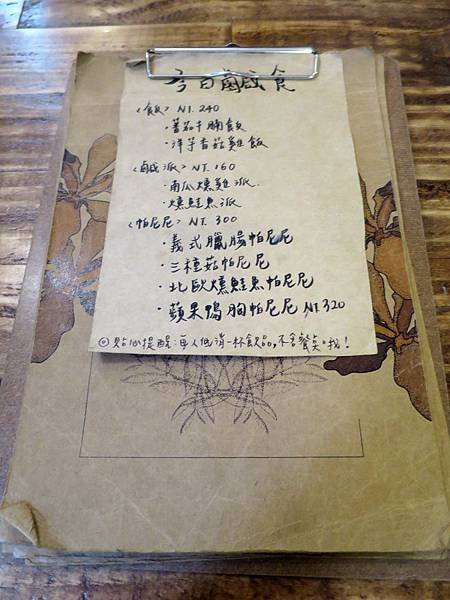 今日鹹食
<飯> NT. 240
·蕃茄牛腩飯
·洋芋香菇雞飯
<鹹派> NT. 160
·南瓜燻雞派
·燻鮭魚派
<帕尼尼> NT. 300
·義式臘腸帕尼尼
·三種菇帕尼尼
·北歐燻鮭魚帕尼尼
·蘋果鴨胸帕尼尼 NT. 320
◎貼心提醒:每人低消一杯飲品,不含餐點。找!